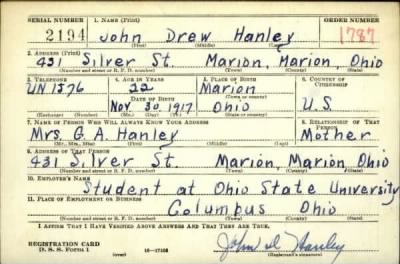 SERIAL NUMBER 1. NAME (Print) ORDER NUMBER
2194 John Drew Hanley 1787
(First) (Middle) (Last)
2. ADDRESS (Print)
431 Silver St. Marion, Marion, Ohio
(Number and street or R. F. D. number) (Town) (County) (State)
3. TELEPHONE 4. AGE IN YEARS 5. PLACE OF BIRTH 6. COUNTRY OF CITIZENSHIP
UN 1576 22 Marion
(Town or county)
DATE OF BIRTH
Nov. 30, 1917 Ohio U.S.
(Exchange) (Number) (Mo.) (Day) (Yr.) (State or country)
7. NAME OF PERSON WHO WILL ALWAYS KNOW YOUR ADDRESS 8. RELATIONSHIP OF THAT PERSON
Mrs. G. A. Hanley Mother
(Mr., Mrs., Miss) (First) (Middle) (Last)
9. ADDRESS OF THAT PERSON
431 Silver St. Marion, Marion Ohio
(Number and street or R. F. D. number) (Town) (County) (State)
10. EMPLOYER'S NAME
Student at Ohio State University
11. PLACE OF EMPLOYMENT OR BUSINESS
Columbus Ohio
(Number and street or R. F. D. number) (Town) (County) (State)
I AFFIRM THAT I HAVE VERIFIED ABOVE ANSWERS AND THAT THEY ARE TRUE.
REGISTRATION CARD
D. S. S. FORM 1 (over) John D. Hanley
(Registrant's signature)